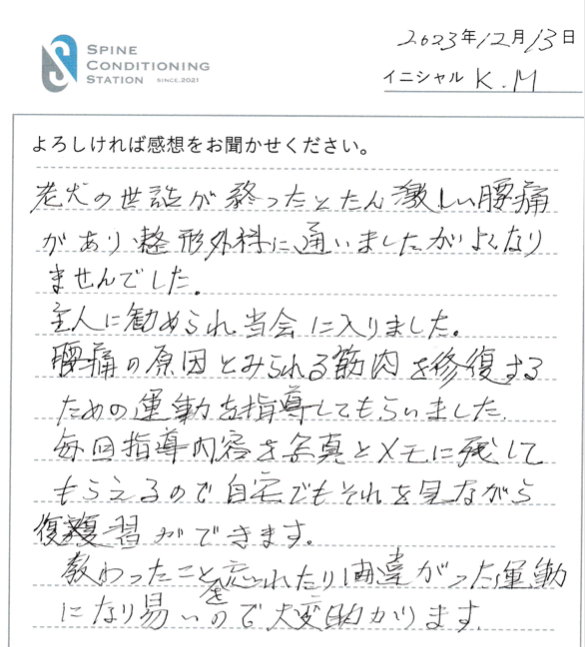 SPINE
CONDITIONING
STATION SINCE.2021
2023年12月13日
イニシャル K.M
よろしければ感想をお聞かせください。
老犬の世話が終ったとたん激しい腰痛
があり、整形外科に通いましたがよくなり
ませんでした。
主人に勧められ当会に入りました。
腰痛の原因とみられる筋肉を修復する
ための運動を指導してもらいました。
毎回指導内容を写真とメモに残して
もらえるので自宅でもそれを見ながら
復習ができます。
教わったことを忘れたり間違がった運動
になり易いので大変助かります。